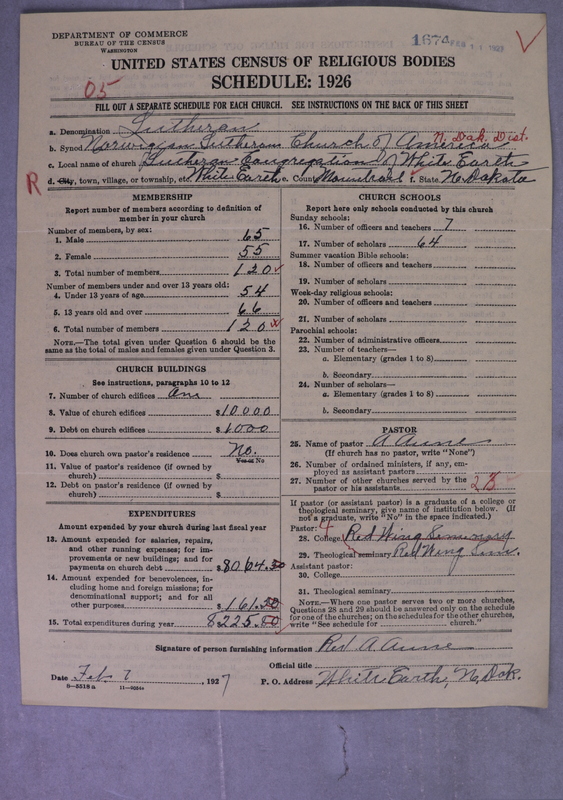 DEPARTMENT OF COMMERCE
BUREAU OF THE CENSUS
WASHINGTON
1674 FEB 11 1927
UNITED STATES CENSUS OF RELIGIOUS BODIES
05
SCHEDULE: 1926
FILL OUT A SEPARATE SCHEDULE FOR EACH CHURCH. SEE INSTRUCTIONS ON THE BACK OF THIS SHEET
a. Denomination Lutheran
b. Synod Norwegian Lutheran Church of America N. Dak. Dist.
c. Local name of church Lutheran Congregation of White Earth
R d. City, town, village, or township, etc. White Earth e. County Mountrail f. State N. Dakota
MEMBERSHIP
Report number of members according to definition of member in your church
Number of members, by sex:
1. Male 65
2. Female 55
3. Total number of members 120
Number of members under and over 13 years old:
4. Under 13 years of age 54
5. 13 years old and over 66
6. Total number of members 120
NOTE.—The total given under Question 6 should be the same as the total of males and females given under Question 3.
CHURCH BUILDINGS
See instructions, paragraphs 10 to 12
7. Number of church edifices One
8. Value of church edifices $10000
9. Debt on church edifices $1000
10. Does church own pastor's residence No.
Yes or No
11. Value of pastor's residence (if owned by church) $
12. Debt on pastor's residence (if owned by church) $
EXPENDITURES
Amount expended by your church during last fiscal year
13. Amount expended for salaries, repairs, and other running expenses; for improvements or new buildings; and for payments on church debt $8064.50
14. Amount expended for benevolences, including home and foreign missions; for denominational support; and for all other purposes $161.50
15. Total expenditures during year 8225.00
CHURCH SCHOOLS
Report here only schools conducted by this church
Sunday schools:
16. Number of officers and teachers 7
17. Number of scholars 64
Summer vacation Bible schools:
18. Number of officers and teachers
19. Number of scholars
Week-day religious schools:
20. Number of officers and teachers
21. Number of scholars
Parochial schools:
22. Number of administrative officers
23. Number of teachers—
a. Elementary (grades 1 to 8)
b. Secondary
24. Number of scholars—
a. Elementary (grades 1 to 8)
b. Secondary
PASTOR
25. Name of pastor A Aune
(If church has no pastor, write "None")
26. Number of ordained ministers, if any, employed as assistant pastors
27. Number of other churches served by the pastor or his assistants
If pastor (or assistant pastor) is a graduate of a college or theological seminary, give name of institution below. (If not a graduate, write "No" in the space indicated.)
Pastor: 4
28. College Red Wing Seminary
29. Theological seminary Red Wing Sem.
Assistant pastor:
30. College
31. Theological seminary
NOTE.—Where one pastor serves two or more churches, Questions 28 and 29 should be answered only on the schedule for one of the churches; on the schedules for the other churches, write "See schedule for church."
Signature of person furnishing information Rev A Aune
Official title
Date Feb 7, 1927 P. O. Address White Earth, N. Dak.
8—5518a